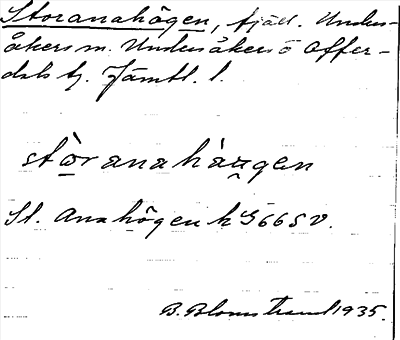 Storanahögen, fjäll. Unders-
åkers sn. Undersåkers o Offer-
dals tg. Jämtl. l.
stòranahàugen
St. Anahögen h S 66 S V.
B. Blomstrand 1935.